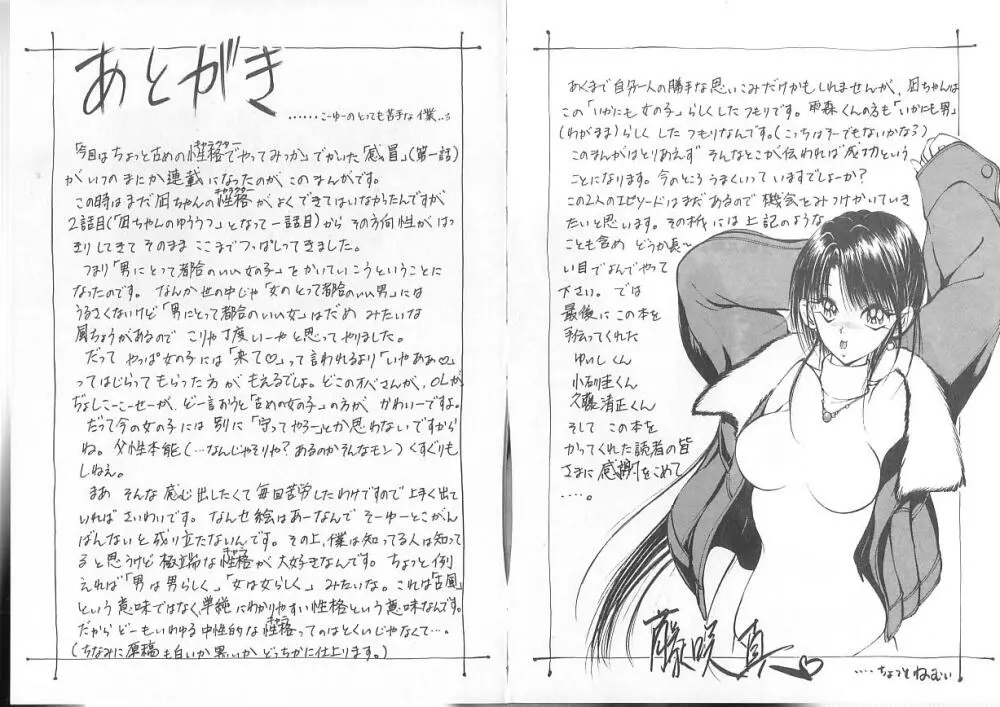 あとがき
……こーゆーのとっても苦手な僕…
「今回はちょっと古めの性格でやってみっか」でかいた「感冒」(第一話)
キャラクター
がいつのまにか連載になったのが このまんがです。
この時はまだ 凪ちゃんの性格が よくできてはいなかったんですが
キャラクター
2話目(「凪ちゃんのゆううつ」となって一話目)から その方向性がはっ
きりしてきて そのまま ここまでつっぱしってきました。
つまり「男にとって都合のいい女の子」をかいていこうということに
なったのです。 なんか世の中じゃ「女のとって都合のいい男」には
うるさくないけど「男にとって都合のいい女」はだめ みたいな
風ちょうがあるので こりゃ丁度いーや と思ってやりました。
だって やっぱ女の子には「来て♡」って言われるより「いやああ♡」
ってはじらってもらった方が もえるでしょ。どこのオバさんが、OLが
ぢょしこーこーせーが、どー言おうと「古めの女の子」の方が かわいーですよ。
だって今の女の子には 別に「守ってやろー」とか思わないですから
ね。父性本能(…なんじゃそりゃ?あるのかそんなモン)くすぐりも
しねえ。
まあ そんな 感じ出したくて 毎回苦労したわけですので 上手く出て
いれば さいわいです。 なんせ絵はあーなんで そーゆーとこがん
ばんないと 成り立たないんです。その上、僕は知ってる人は知って
ると思うけど 極端な性格が 大好きなんです。 ちょっと例
キャラ
えれば「男は男らしく」「女は女らしく」みたいな。これは「古風」
という意味ではなく、単純にわかりやすい性格という意味なんです。
だから どーも いわゆる 中性的な性格ってのはとくいじゃなくて…。
キャラ
(ちなみに原稿も白いか黒いか どっちかに仕上ります。)
あくまで自分一人の勝手な思いこみだけかもしれませんが、凪ちゃんは
この「いかにも女の子」らしくしたつもりです。雨森くんの方も「いかにも男」
(わがまま)らしく したつもりなんです。(こっちはそーでもないかな?)
このまんがはとりあえず そんなとこが伝われば成功という
ことになります。今のところ うまくいって いますでしょーか?
この2人のエピソードはまだあるので 機会をみつけかいていき
たいと思います。その折には 上記のような
ことも含め どうか長〜
い目でよんでやって
下さい。では
最後に この本を
手伝ってくれた
ゆいし くん
小砂圭くん
久藤清正くん
そして この本を
かってくれた読者の皆
さまに 感謝をこめて
‥‥。
藤咲真♡
‥‥ちょっと ねむい